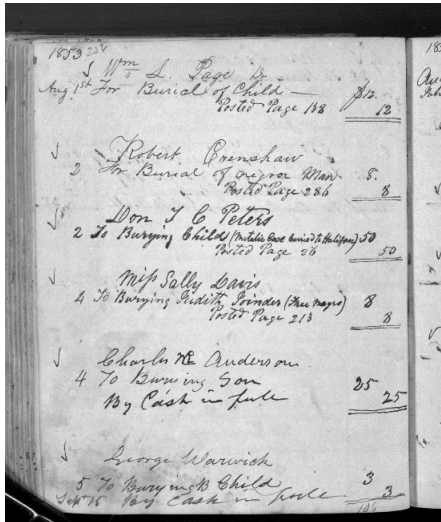 1853
Wm S. Page Dr
Aug 1st For Burial of Child — $12.
Posted Page 138 12
Robert Crenshaw
2 For Burial of negroe Man 8.
Posted Page 286 8
Don T C Peters
2 To Burying Child (Metalic Case carried to Halifax) 50
Posted Page 26 50
Miss Sally Davis
4 To Burying Judith Joinder (free negro) 8
Posted Page 213 8
Charles Anderson
4 To Burying Son 25
By Cash in full 25
George Warwick
5 To Burying B Child 3
Sept 15 By Cash in full 3
106